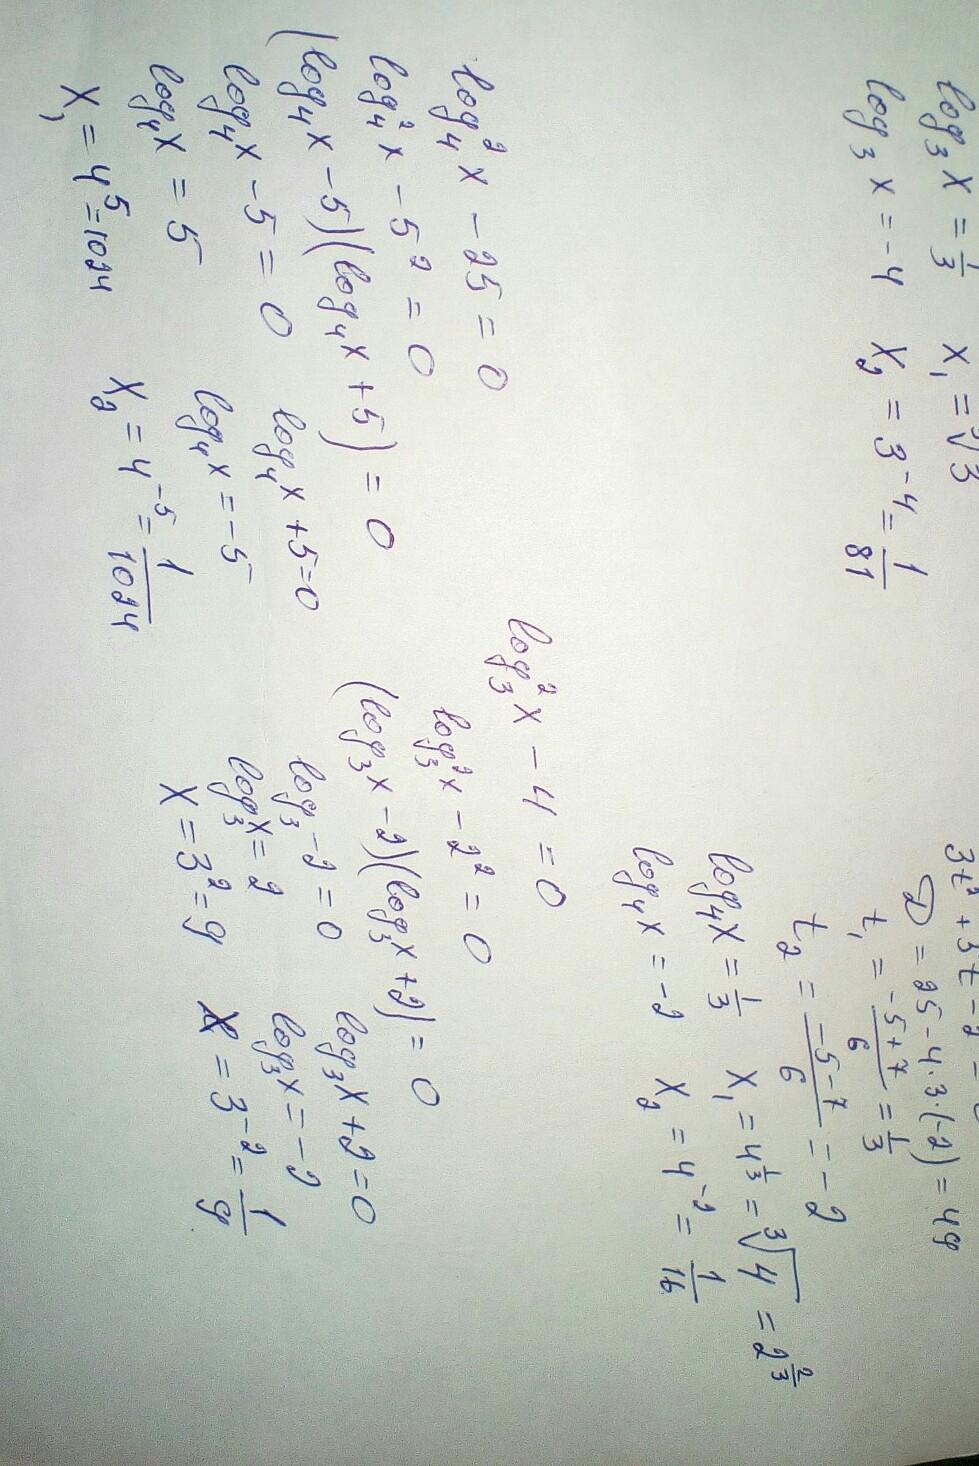 log₃ x = 1/3 x₁ = ∛3
log₃ x = -4 x₂ = 3⁻⁴ = 1/81
log₄² x - 25 = 0
log₄² x - 5² = 0
(log₄ x - 5)(log₄ x + 5) = 0
log₄ x - 5 = 0 log₄ x + 5 = 0
log₄ x = 5 log₄ x = -5
x₁ = 4⁵ = 1024 x₂ = 4⁻⁵ = 1/1024
D = 25 - 4·3·(-2) = 49
t₁ = (-5+7)/6 = 1/3
t₂ = (-5-7)/6 = -2
log₄ x = 1/3 x₁ = 4^(1/3) = ∛4 = 2^(2/3)
log₄ x = -2 x₂ = 4⁻² = 1/16
log₃² x - 4 = 0
log₃² x - 2² = 0
(log₃ x - 2)(log₃ x + 2) = 0
log₃ - 2 = 0 log₃ x + 2 = 0
log₃ x = 2 log₃ x = -2
x = 3² = 9 x = 3⁻² = 1/9